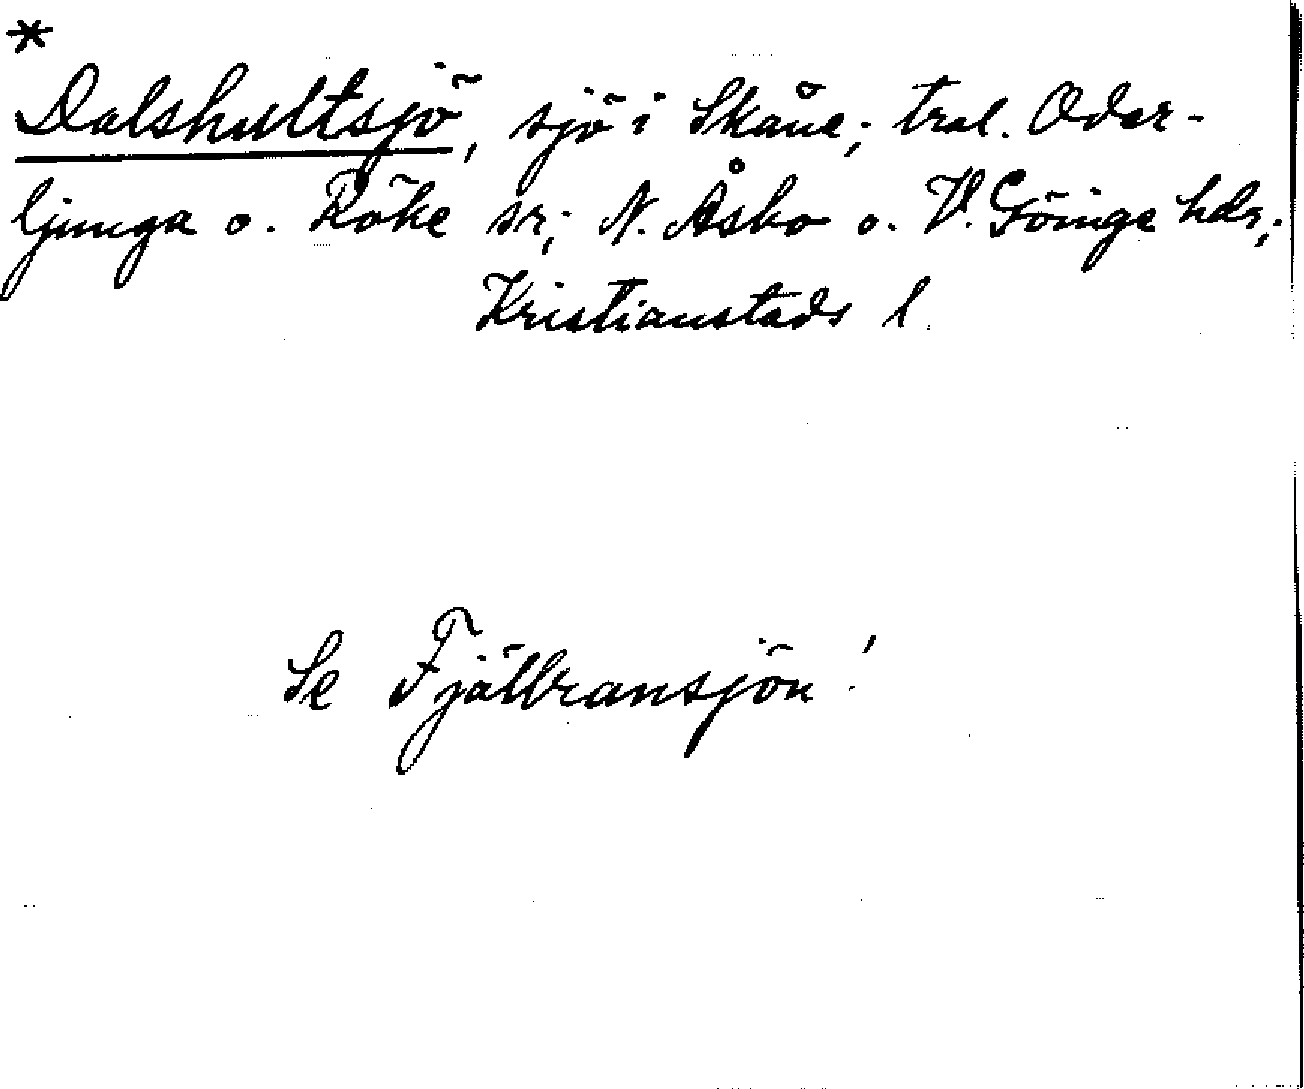 *
Dalshultsjö, sjö i Skåne; tral. Oder-
ljunga o. Röke sr; N. Åsbo o. V. Göinge hdr;
Kristianstads l.
Se Fjällransjön!